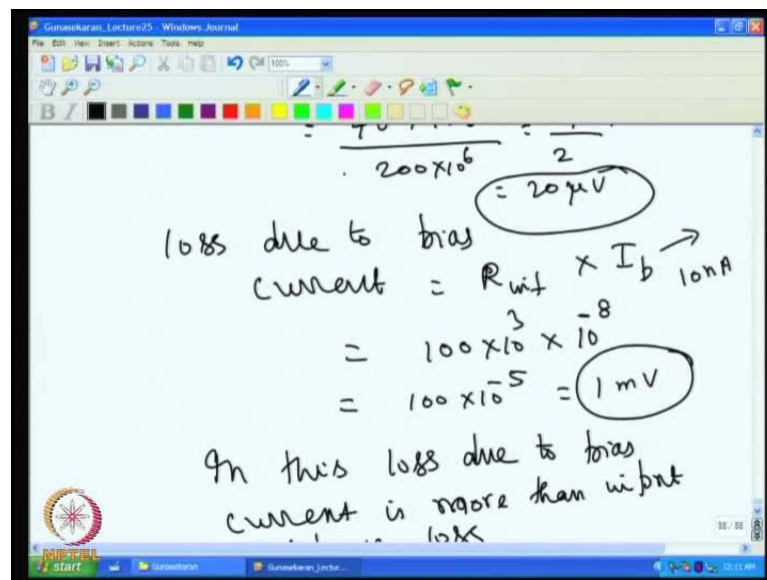 Gunasekaran_Lecture25 - Windows Journal
File Edit View Insert Actions Tools Help
100%
B I
=
200×10⁶ 2
= 20 μV
loss due to bias
current = R_inf × I_b → 10nA
= 100×10³ × 10⁻⁸
= 100×10⁻⁵ = 1 mV
In this loss due to bias
current is more than input
loss
88 / 88
NPTEL
start Gunasekaran Gunasekaran_Lectur... 12:11 AM